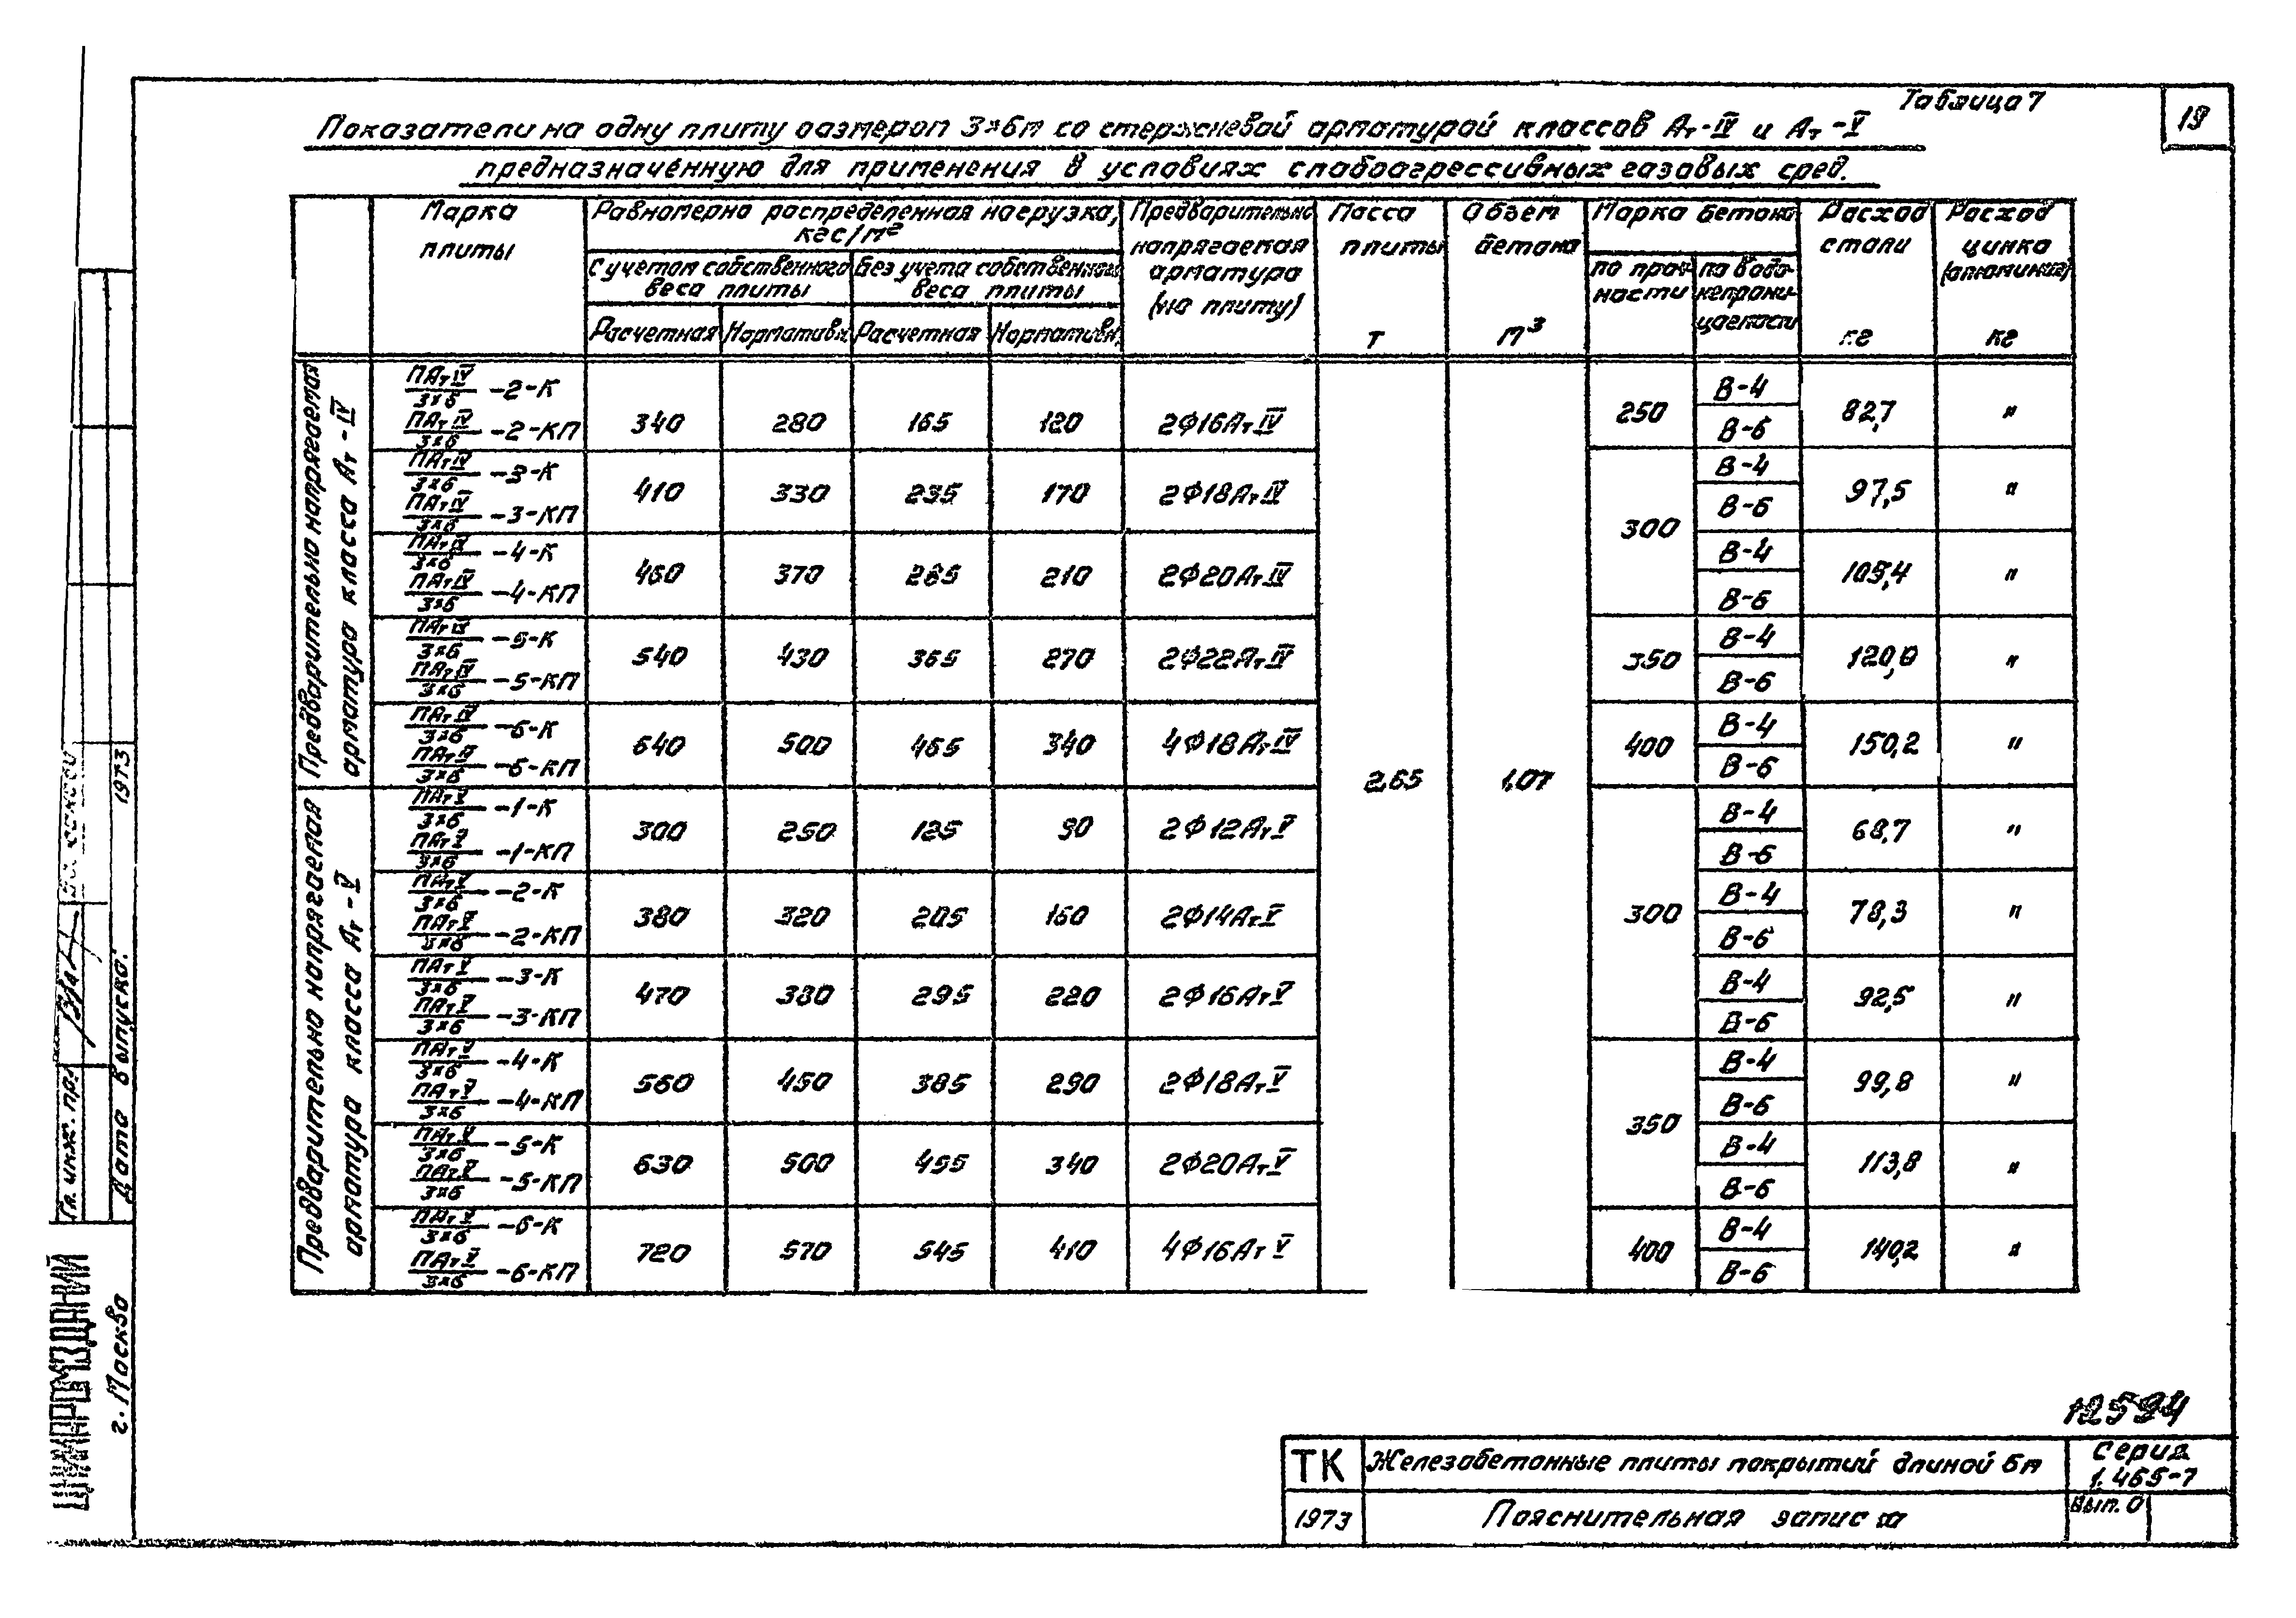 Таблица 7
19
Показатели на одну плиту размером 3×6м со стержневой арматурой классов Ат-IV и Ат-V
предназначенную для применения в условиях слабоагрессивных газовых сред.
Марка плиты
Равномерно распределенная нагрузка, кгс/м²
С учетом собственного веса плиты
Без учета собственного веса плиты
Расчетная
Нормативн.
Расчетная
Нормативн.
Предварительно напрягаемая арматура (на плиту)
Масса плиты т
Объем бетона м³
Марка бетона
по прочности
по водонепроницаемости
Расход стали кг
Расход цинка (алюминия) кг
Предварительно напрягаемая арматура класса Ат-IV
ПАтIV/3×6 -2-К
ПАтIV/3×6 -2-КП
340 280 165 120 2Ф16АтIV 250 В-4 В-6 82,7 "
ПАтIV/3×6 -3-К
ПАтIV/3×6 -3-КП
410 330 235 170 2Ф18АтIV 300 В-4 В-6 97,5 "
ПАтIV/3×6 -4-К
ПАтIV/3×6 -4-КП
460 370 285 210 2Ф20АтIV В-4 В-6 105,4 "
ПАтIV/3×6 -5-К
ПАтIV/3×6 -5-КП
540 430 365 270 2Ф22АтIV 350 В-4 В-6 120,0 "
ПАтIV/3×6 -6-К
ПАтIV/3×6 -6-КП
640 500 465 340 4Ф18АтIV 400 В-4 В-6 150,2 "
2,65 1,07
Предварительно напрягаемая арматура класса Ат-V
ПАтV/3×6 -1-К
ПАтV/3×6 -1-КП
300 250 125 90 2Ф12АтV В-4 В-6 68,7 "
ПАтV/3×6 -2-К
ПАтV/3×6 -2-КП
380 320 205 160 2Ф14АтV 300 В-4 В-6 78,3 "
ПАтV/3×6 -3-К
ПАтV/3×6 -3-КП
470 380 295 220 2Ф16АтV В-4 В-6 92,5 "
ПАтV/3×6 -4-К
ПАтV/3×6 -4-КП
560 450 385 290 2Ф18АтV 350 В-4 В-6 99,8 "
ПАтV/3×6 -5-К
ПАтV/3×6 -5-КП
630 500 455 340 2Ф20АтV В-4 В-6 113,8 "
ПАтV/3×6 -6-К
ПАтV/3×6 -6-КП
720 570 545 410 4Ф16АтV 400 В-4 В-6 140,2 "
Гл. инж. пр.
Дата выпуска: 1973
ЦНИИПРОМЗДАНИЙ
г. Москва
12594
ТК
Железобетонные плиты покрытий длиной 6м
Серия 1.465-7
1973
Пояснительная записка
Вып. 0